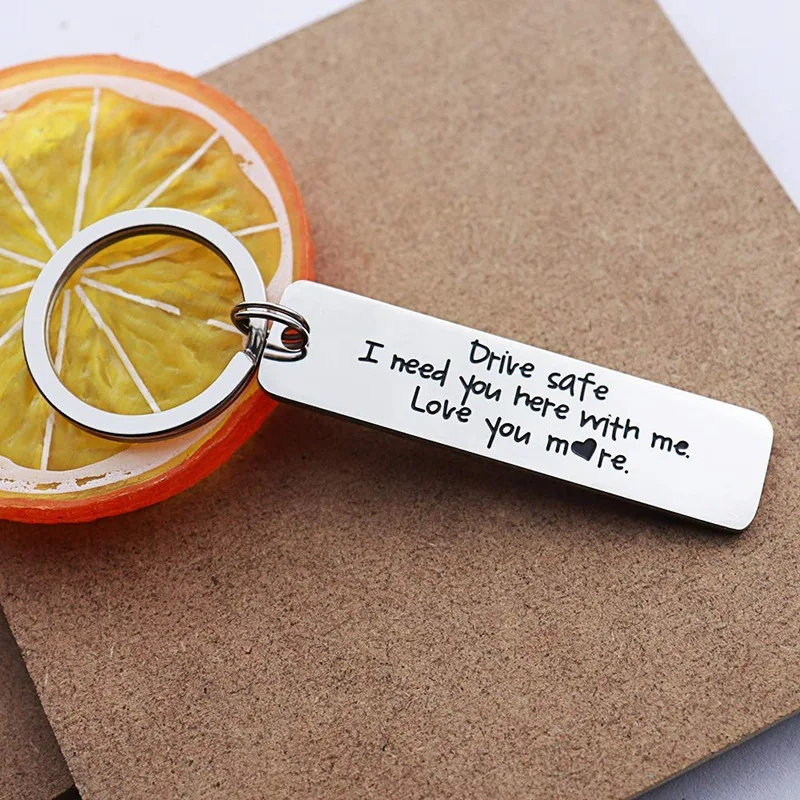 Drive safe
I need you here with me.
Love you m♥re.